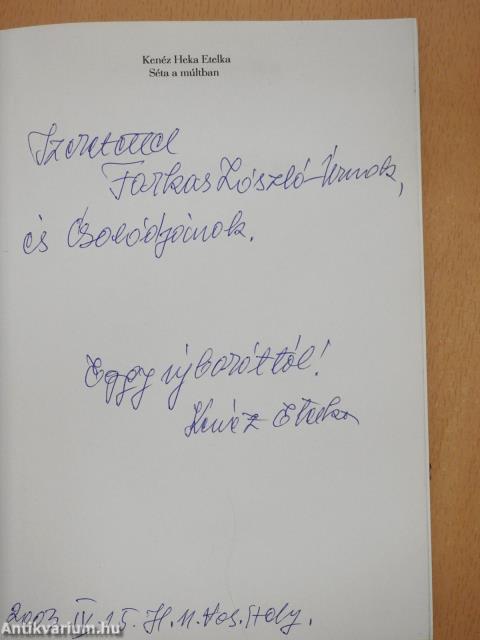 Kenéz Heka Etelka
Séta a múltban
Szeretettel
Farkas László Úrnak,
és Családjának.
Eggy új baráttól!
Kenéz Etelka
2003 IV. 15. H.M.Vás.hely.
Antikvárium.hu